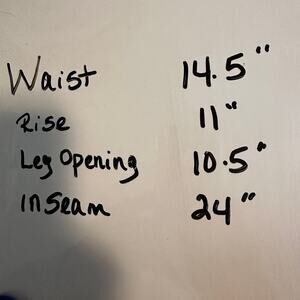 Waist 14.5"
Rise 11"
Leg Opening 10.5"
Inseam 24"